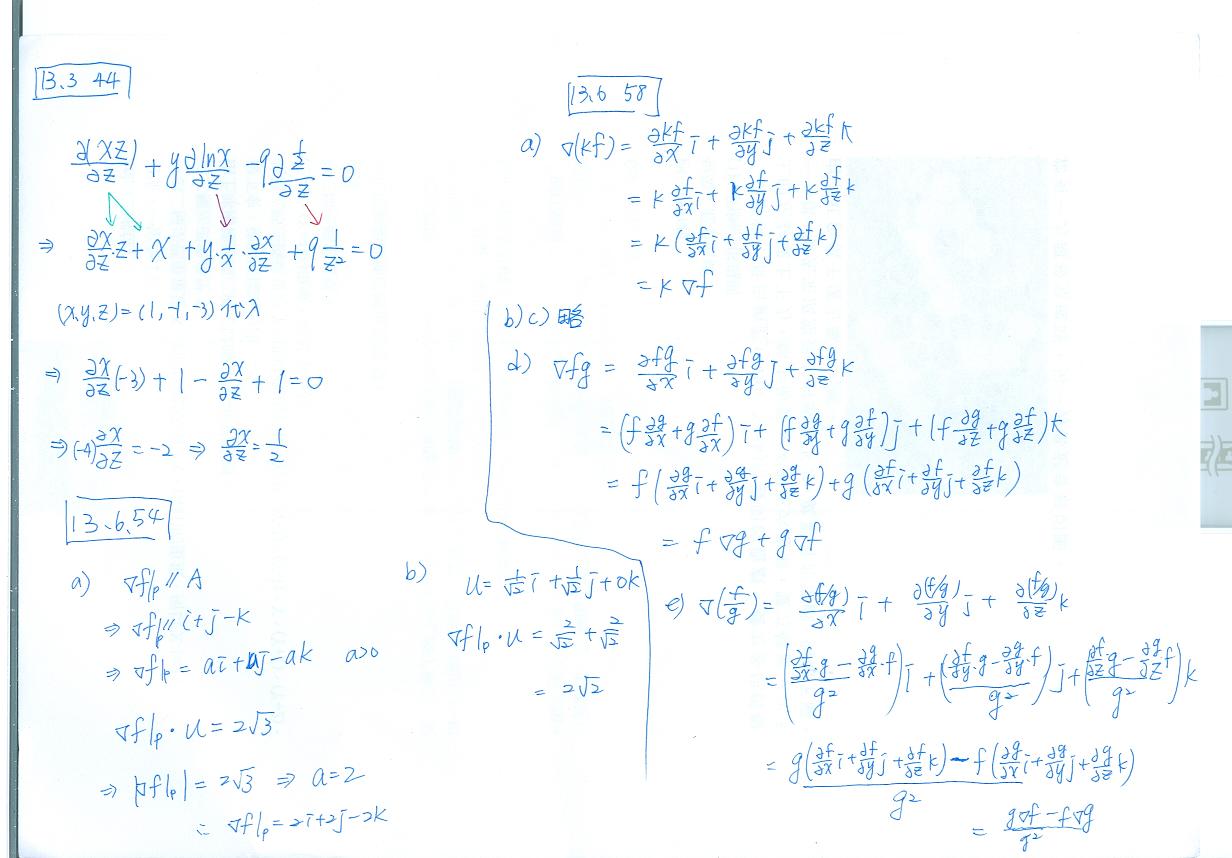 13.3 44
∂(xz)/∂z + y ∂lnx/∂z - 9 ∂(1/z)/∂z = 0
⇒ ∂x/∂z·z + x + y·1/x·∂x/∂z + 9 1/z² = 0
(x,y,z) = (1,-1,-3) 代入
⇒ ∂x/∂z(-3) + 1 - ∂x/∂z + 1 = 0
⇒ (-4)∂x/∂z = -2 ⇒ ∂x/∂z = 1/2
13.6.54
a) ∇f|p // A
⇒ ∇f|p // i+j-k
⇒ ∇f|p = ai+aj-ak a>0
∇f|p · u = 2√3
⇒ |∇f|p| = 2√3 ⇒ a=2
∴ ∇f|p = 2i+2j-2k
b) u = 1/√2 i + 1/√2 j + 0k
∇f|p · u = 2/√2 + 2/√2
= 2√2
13.6 58
a) ∇(kf) = ∂kf/∂x i + ∂kf/∂y j + ∂kf/∂z k
= k ∂f/∂x i + k ∂f/∂y j + k ∂f/∂z k
= k(∂f/∂x i + ∂f/∂y j + ∂f/∂z k)
= k ∇f
b)c) 略
d) ∇fg = ∂fg/∂x i + ∂fg/∂y j + ∂fg/∂z k
= (f ∂g/∂x + g ∂f/∂x) i + (f ∂g/∂y + g ∂f/∂y) j + (f ∂g/∂z + g ∂f/∂z) k
= f(∂g/∂x i + ∂g/∂y j + ∂g/∂z k) + g(∂f/∂x i + ∂f/∂y j + ∂f/∂z k)
= f ∇g + g ∇f
e) ∇(f/g) = ∂(f/g)/∂x i + ∂(f/g)/∂y j + ∂(f/g)/∂z k
= ((∂f/∂x·g - ∂g/∂x·f)/g²) i + ((∂f/∂y·g - ∂g/∂y·f)/g²) j + ((∂f/∂z g - ∂g/∂z f)/g²) k
= (g(∂f/∂x i + ∂f/∂y j + ∂f/∂z k) - f(∂g/∂x i + ∂g/∂y j + ∂g/∂z k))/g²
= (g∇f - f∇g)/g²